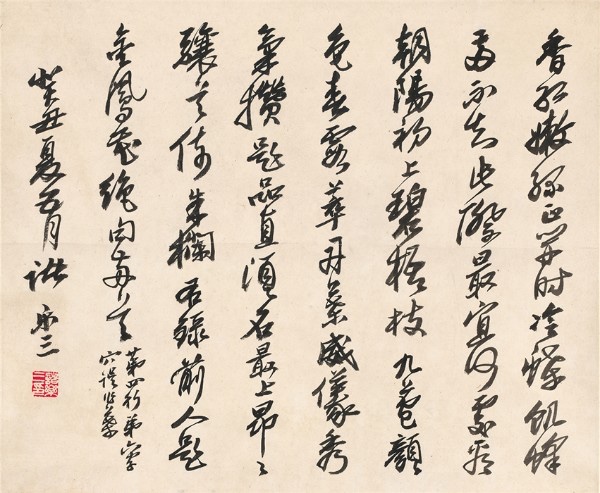 香紅嫩綠正開时冷蝶飢蜂
兩不知此際最宜何處看
朝陽初上碧梧枝九苞顏
色春霞萃丹藥威儀秀
氣攢題品直須名最上昂昂
驤首倚朱欄右録前人題
金鳳花絶句兩首
第四行第六字
穴誤作藥
癸丑夏五月諸樂三